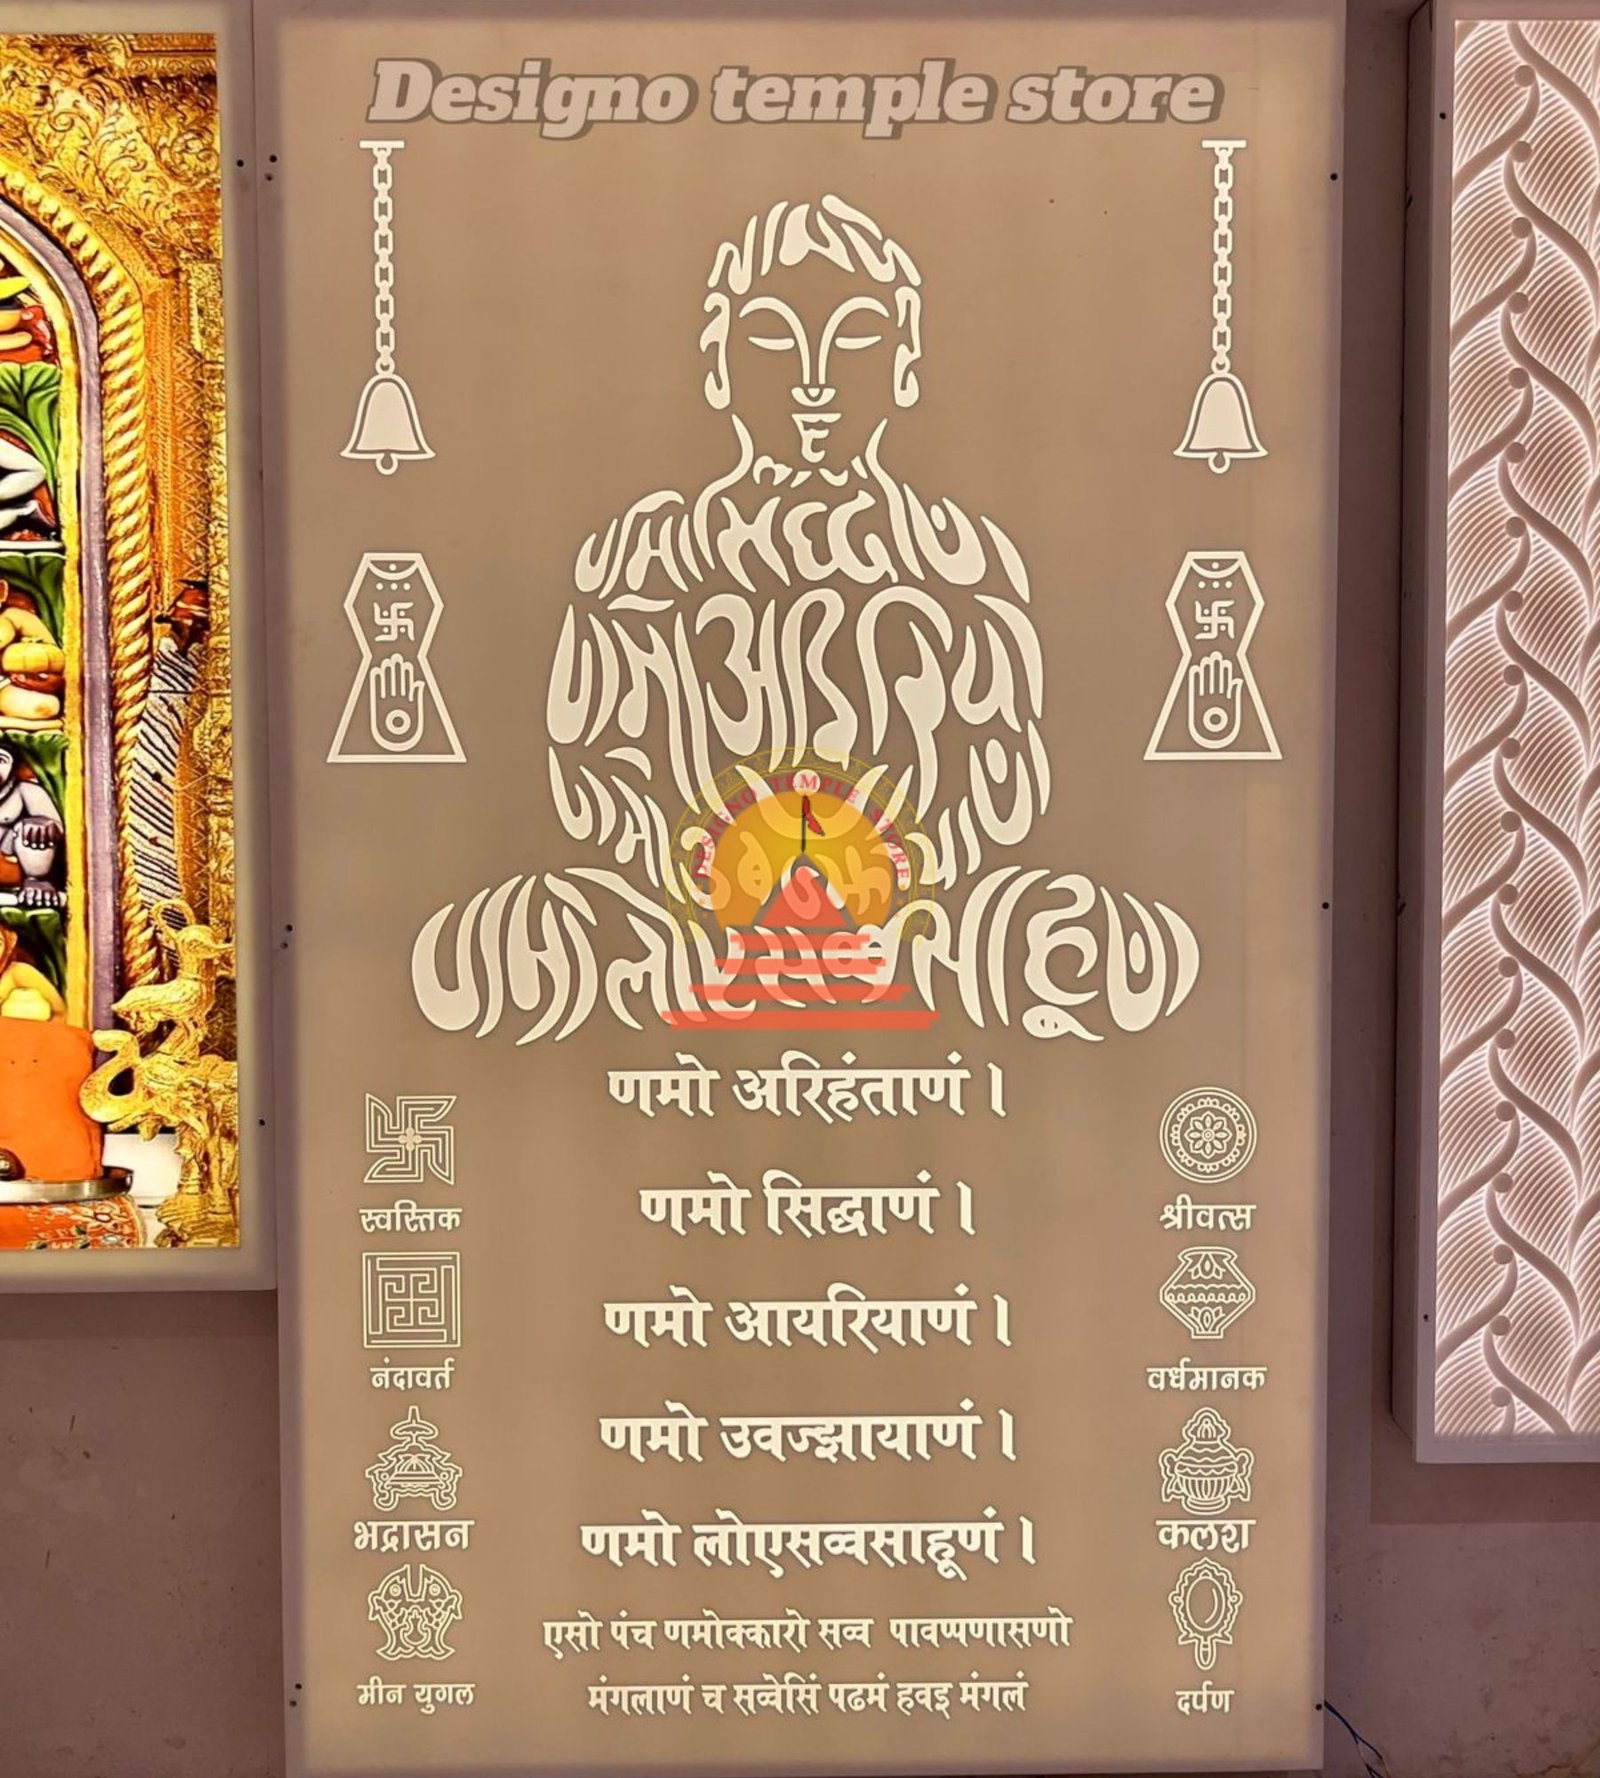 Designo temple store
DESIGNO TEMPLE STORE
णमो अरिहंताणं ।
णमो सिद्धाणं ।
णमो आयरियाणं ।
णमो उवज्झायाणं ।
णमो लोएसव्वसाहूणं ।
एसो पंच णमोक्कारो सव्व पावप्पणासणो
मंगलाणं च सव्वेसिं पढमं हवइ मंगलं
स्वस्तिक
नंदावर्त
भद्रासन
मीन युगल
श्रीवत्स
वर्धमानक
कलश
दर्पण